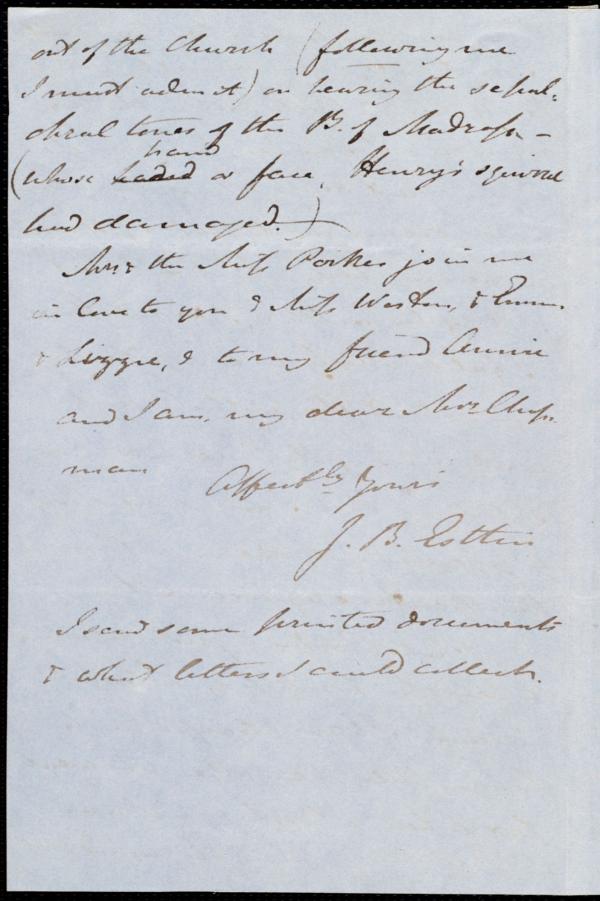 out of the Church (following me
I must admit) on hearing the sepul-
chral tones of the B. of Madrass -
hand
(whose haded or face, Henry's squirrel
had damaged.)
Mrs & the Miss Parkes join me
in love to you & Miss Weston, & Emma
& Lizzie, & to my friend Annie
and I am, my dear Mrs Chap-
man
Affectly Yours
J. B. Estlin
I send some printed documents
& what letters I could collect.